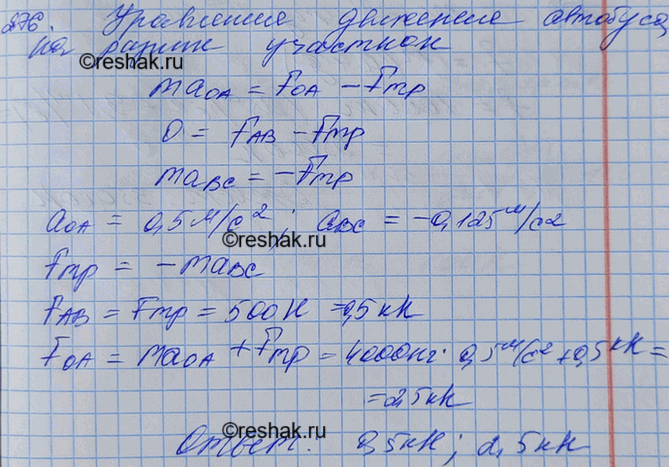 276. Уравнение движения автобуса
на разных участках
reshak.ru
maOA = FOA − Fтр
0 = FAB − Fтр
maBC = −Fтр
aOA = 0,5 м/с²; aBC = −0,125 м/с2
reshak.ru
Fтр = −maBC
FAB = Fтр = 500 Н = 0,5 кН
FOA = maOA + Fтр = 4000 кг · 0,5 м/с² + 0,5 кН =
= 2,5 кН
reshak.ru
Ответ: 0,5 кН; 2,5 кН